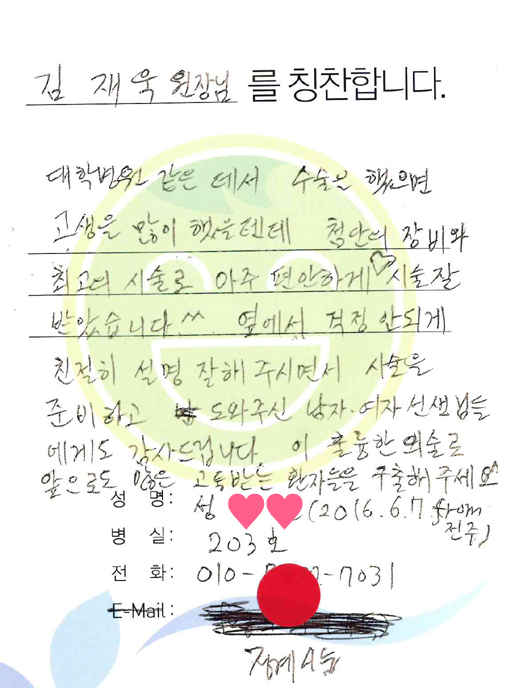 김 재욱 원장님 를 칭찬합니다.
대학병원 같은 데서 수술을 했으면
고생을 많이 했을텐데 첨단의 장비와
최고의 시술로 아주 편안하게♡ 시술 잘
받았습니다^^. 옆에서 걱정 안되게
친절히 설명 잘해 주시면서 시술을
준비하고 도와주신 남자·여자 선생님들
에게도 감사드립니다. 이 훌륭한 의술로
앞으로도 많은 고통받는 환자들을 구출해 주세요^^
성 명: 성 (2016.6.7 from
전주)
병 실: 203호
전 화: 010- -7031
E-Mail: